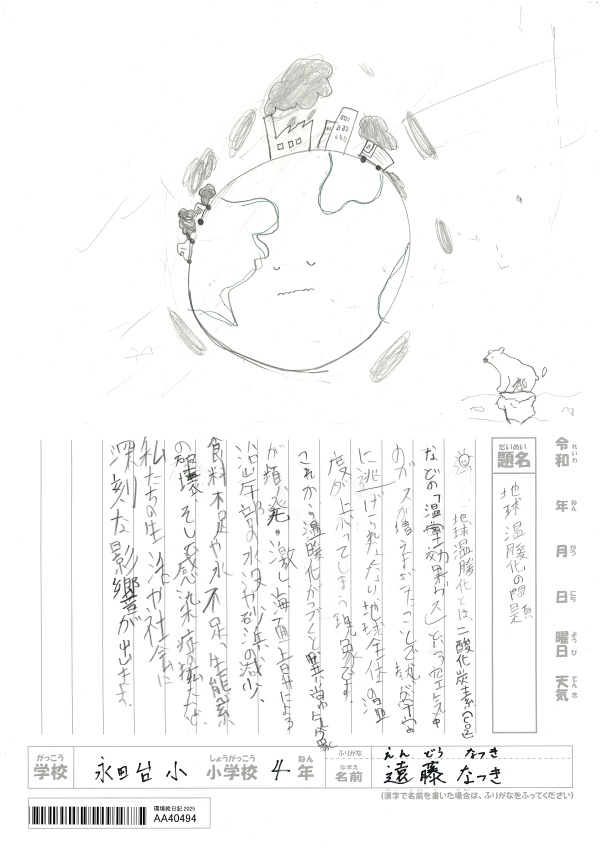 れいわ
令和
ねん
年
がつ
月
にち
日
ようび
曜日
てんき
天気
だいめい
題名
地球温暖化の問題
地球温暖化とは、二酸化炭素(CO2)
などの「温室効果ガス」という空気中
のガスが増えすぎたことで熱が宇宙
に逃げられなくなり地球全体の温
度が上がってしまう現象です。
これから温暖化がつづくと異常気象
が頻発・激し、海面上昇による
沿岸部の水没や砂浜の減少、
食料不足や水不足、生態系
の破壊、そして感染症の拡大など
私たちの生活や社会に
深刻な影響が出ます。
がっこう
学校
永田台小
しょうがっこう
小学校
4
ねん
年
ふりがな
えんどう なつき
なまえ
名前
遠藤 なつき
(漢字で名前を書いた場合は、ふりがなをふってください)
環境絵日記 2025
AA40494